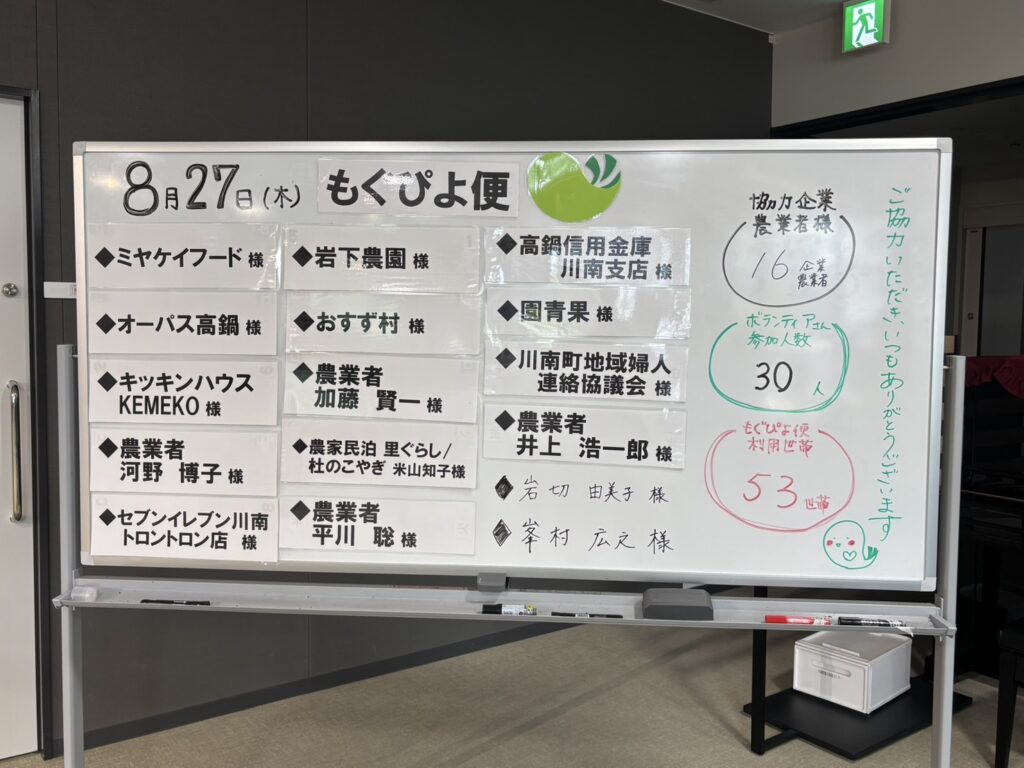 8月27日(木) もぐぴよ便
◆ミヤケイフード 様
◆オーパス高鍋 様
◆キッキンハウス
KEMEKO 様
◆農業者
河野 博子 様
◆セブンイレブン川南
トロントロン店 様
◆岩下農園 様
◆おすず村 様
◆農業者
加藤 賢一 様
◆農家民泊 里ぐらし/
杜のこやぎ 米山知子様
◆農業者
平川 聡 様
◆高鍋信用金庫
川南支店 様
◆園青果 様
◆川南町地域婦人
連絡協議会 様
◆農業者
井上 浩一郎 様
◆岩切 由美子 様
◆峯村 広之 様
協力企業
農業者様
16 企業
農業者
ボランティアさん
参加人数
30人
もぐぴよ便
利用世帯
53世帯
ご協力いただき、いつもありがとうございます